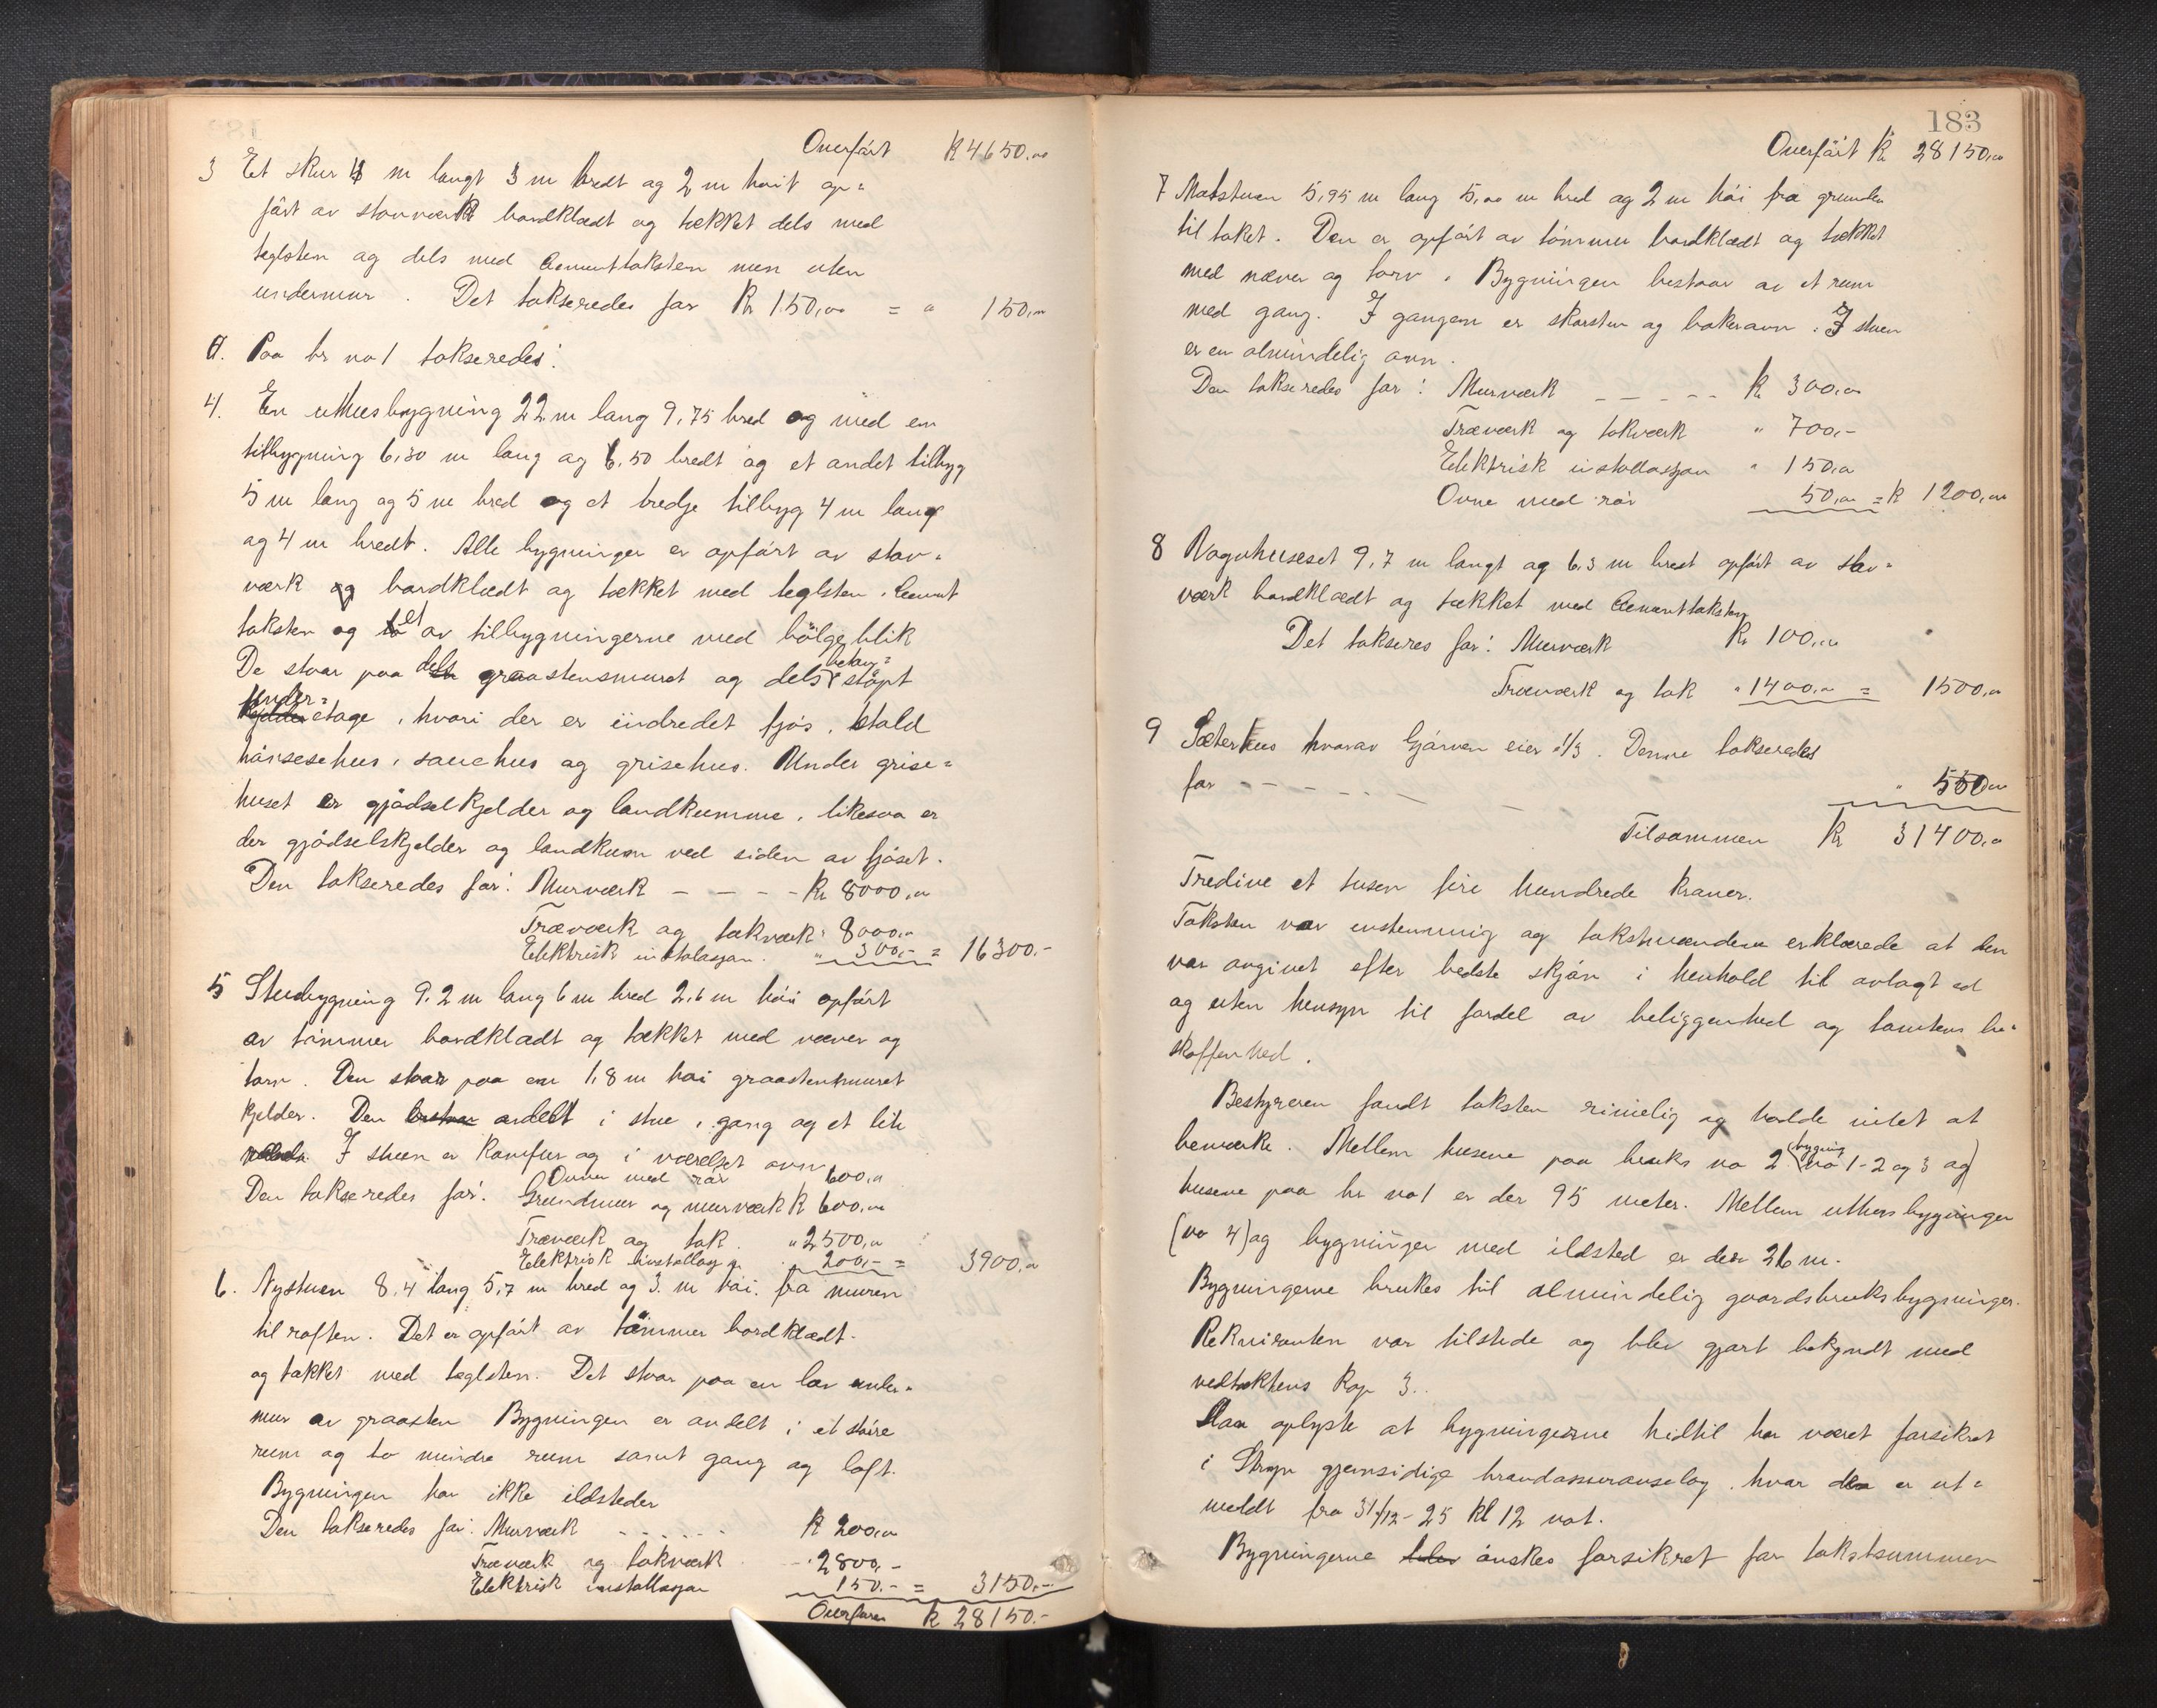 Overført K 4650.00
3 Et skur 4 m langt 3 m bredt og 2 m høit op=
ført av stavverk bordklædt og tækket dels med
teglsten og dels med Cementtaksten men uten
undermur. Det takseredes for Kr 150,00 = " 150,00
Paa br no 1 takseredes:
4. En uthusbygning 22 m lang 9,75 bred og med en
tilbygning 6,30 m lang og 6,50 bredt og et andet tilbyg
5 m lang og 5 m bred og et tredje tilbyg 4 m lang
og 4 m bredt. Alle bygninger er opført av stav=
værk og bordklædt og tækket med teglsten, Cement
taksten og et av tilbygningerne med bølgeblik
De staar paa dels graastensmuret og dels beton= støpt
under=etage, hvori der er indredet fjøs, stald
hønsehus, sauehus og grisehus. Under grise=
huset er gjødselkjelder og landkumme, likesaa er
der gjødselskjelder og landkum ved siden av fjøset.
Den takseredes for: Murværk - - - - Kr 8000,00
Træværk og takværk " 8000,00
Elektrisk instalasjon. " 300,- = 16300.-
5 Stuebygning 9,2 m lang 6 m bred 2,6 m høi opført
av tømmer bordklædt og tækket med næver og
torv. Den staar paa en 1,8 m høi graastenhmuret
kjelder. Den bestaar andelt i stue, gang og et lite
I stuen er Komfur og i værelset ovn
Ovner med rør 600,00
Den takseredes for: Grundmur og murværk K 600,00
Træværk og tak. " 2500,00
Elektrisk Installasjon " 200,- = 3900,00
6. Nystuen 8,4 lang 5,7 m bred og 3. m høi. fra muren
til raften. Det er opført av tømmer bordklædt.
og tækket med teglsten. Det staar paa en lav under=
mur av graasten Bygningen er andelt i et større
rum og to mindre rum samt gang og loft.
Bygningen har ikke ildsteder
Den takseredes for: Murværk - - - - - - K 200,00
Træværk og takværk - - 2800,-
Elektrisk installasjon 150.- = 3150.-
Overføres K 28150.-
183
Overført Kr 28150,00
7 Matstuen 5,95 m lang 5,00 m bred og 2 m høi fra grunden
til taket. Den er opført av tømmer bordklædt og tækket
med næver og torv. Bygningen bestaar av et rum
med gang. I gangen er skorsten og bakerovn. I stuen
er en almindelig ovn.
Den takseredes for: Murværk - - - - - K 300,00
Træværk og takværk " 700,-
Elektrisk installasjon " 150,00
Ovne med rør 50,00 = K 1200,00
8 Vognhuseset 9,7 m langt og 6,3 m bredt opført av stav=
værk bordklædt og tækket med Cementtaksten
Det takseres for: Murværk Kr 100,00
Træværk og tak " 1400,00 = 1500,00
9 Sæterhus hvorav Gjørven eier 1/3. Denne takseredes
for - - - - - - " 550,00
Tilsammen Kr 31400,00
Tredive et tusen fire hundrede kroner.
Taksten var enstemmig og takstmændene erklærede at den
var avgivet efter bedste skjøn i henhold til avlagt ed
og uten hensyn til fordel av beliggenhed og tomtens be=
skaffenhed.
Bestyreren fandt taksten rimelig og hadde intet at
bemærke. Mellem husene paa bruks no 2 (bygning no 1-2 og 3 og)
husene paa br no 1 er der 95 meter. Mellem uthusbygninger
(no 4) og bygninger med ildsted er der 26 m.
Bygningerne brukes til almindelig gaardsbruksbygninger.
Rekvirenten var tilstede og blev gjort bekjendt med
vedtektens Kap 3..
Han oplyste at bygningerne hidtil har været forsikret
i Stryn gjensidige brandassuranselag, hvor den er ut=
meldt fra 31/12-25 kl 12 nat.
Bygningerne blev ønskes forsikret for takstsummen